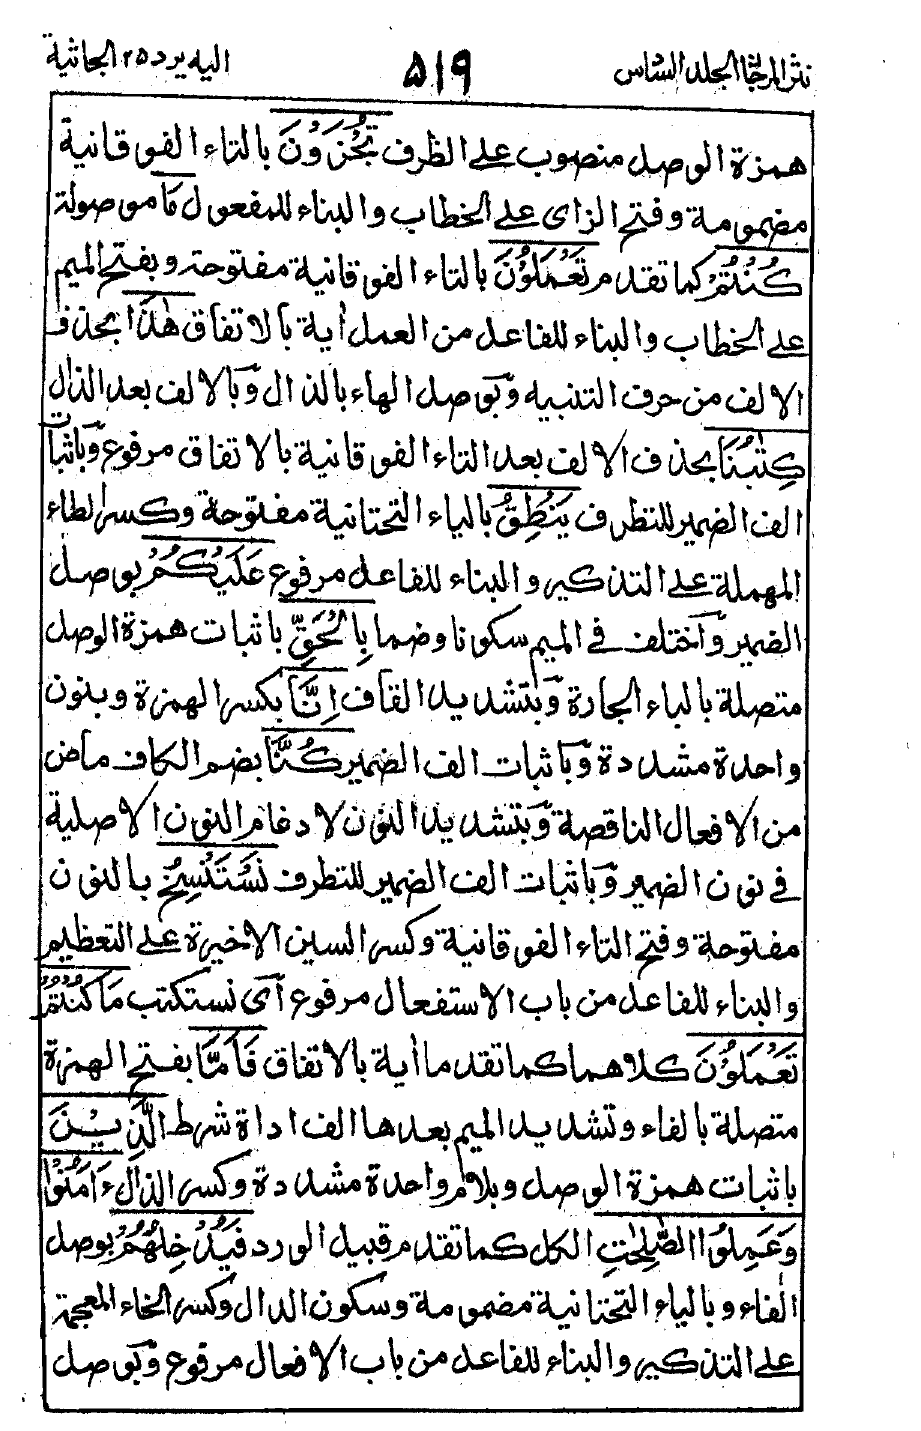 نثر المرجان الجلد السادس ٥١٩ اليه يرد ٢٥ الجاثية
همزة الوصل منصوب على الظرف تُجْزَوْنَ بالتاء الفوقانية
مضمومة وفتح الزاى على الخطاب والبناء للمفعول مَا موصولة
كُنْتُمْ كما تقدم تَعْمَلُوْنَ بالتاء الفوقانية مفتوحة وبفتح الميم
على الخطاب والبناء للفاعل من العمل أية بالاتفاق هٰذَا بحذف
الالف من حرف التنبيه وبوصل الهاء بالذال وبالالف بعد الذال
كِتٰبُنَا بحذف الالف بعد التاء الفوقانية بالاتفاق مرفوع وباثبات
الف الضمير للتطرف يَنْطِقُ بالياء التحتانية مفتوحة وكسر الطاء
المهملة على التذكير والبناء للفاعل مرفوع عَلَيْكُمْ بوصل
الضمير واختلف فى الميم سكونا وضما بِالْحَقِّ باثبات همزة الوصل
متصلة بالباء الجارة وبتشديد القاف اِنَّا بكسر الهمزة وبنون
واحدة مشددة وباثبات الف الضمير كُنَّا بضم الكاف ماض
من الافعال الناقصة وبتشديد النون لادغام النون الاصلية
فى نون الضمير وباثبات الف الضمير للتطرف نَسْتَنْسِخُ بالنون
مفتوحة وفتح التاء الفوقانية وكسر السين الاخيرة على التعظيم
والبناء للفاعل من باب الاستفعال مرفوع أى نستكتب مَا كُنْتُمْ
تَعْمَلُوْنَ كلاهما كما تقدما أية بالاتفاق فَاَمَّا بفتح الهمزة
متصلة بالفاء وتشديد الميم بعدها الف اداة شرط الَّذِيْنَ
باثبات همزة الوصل وبلام واحدة مشددة وكسر الذال ءَامَنُوْا
وَعَمِلُوا الصّٰلِحٰتِ الكل كما تقدم قبيل الورد فَيُدْخِلُهُمْ بوصل
الفاء وبالياء التحتانية مضمومة وسكون الدال وكسر الخاء المعجمة
على التذكير والبناء للفاعل من باب الافعال مرفوع وبوصل